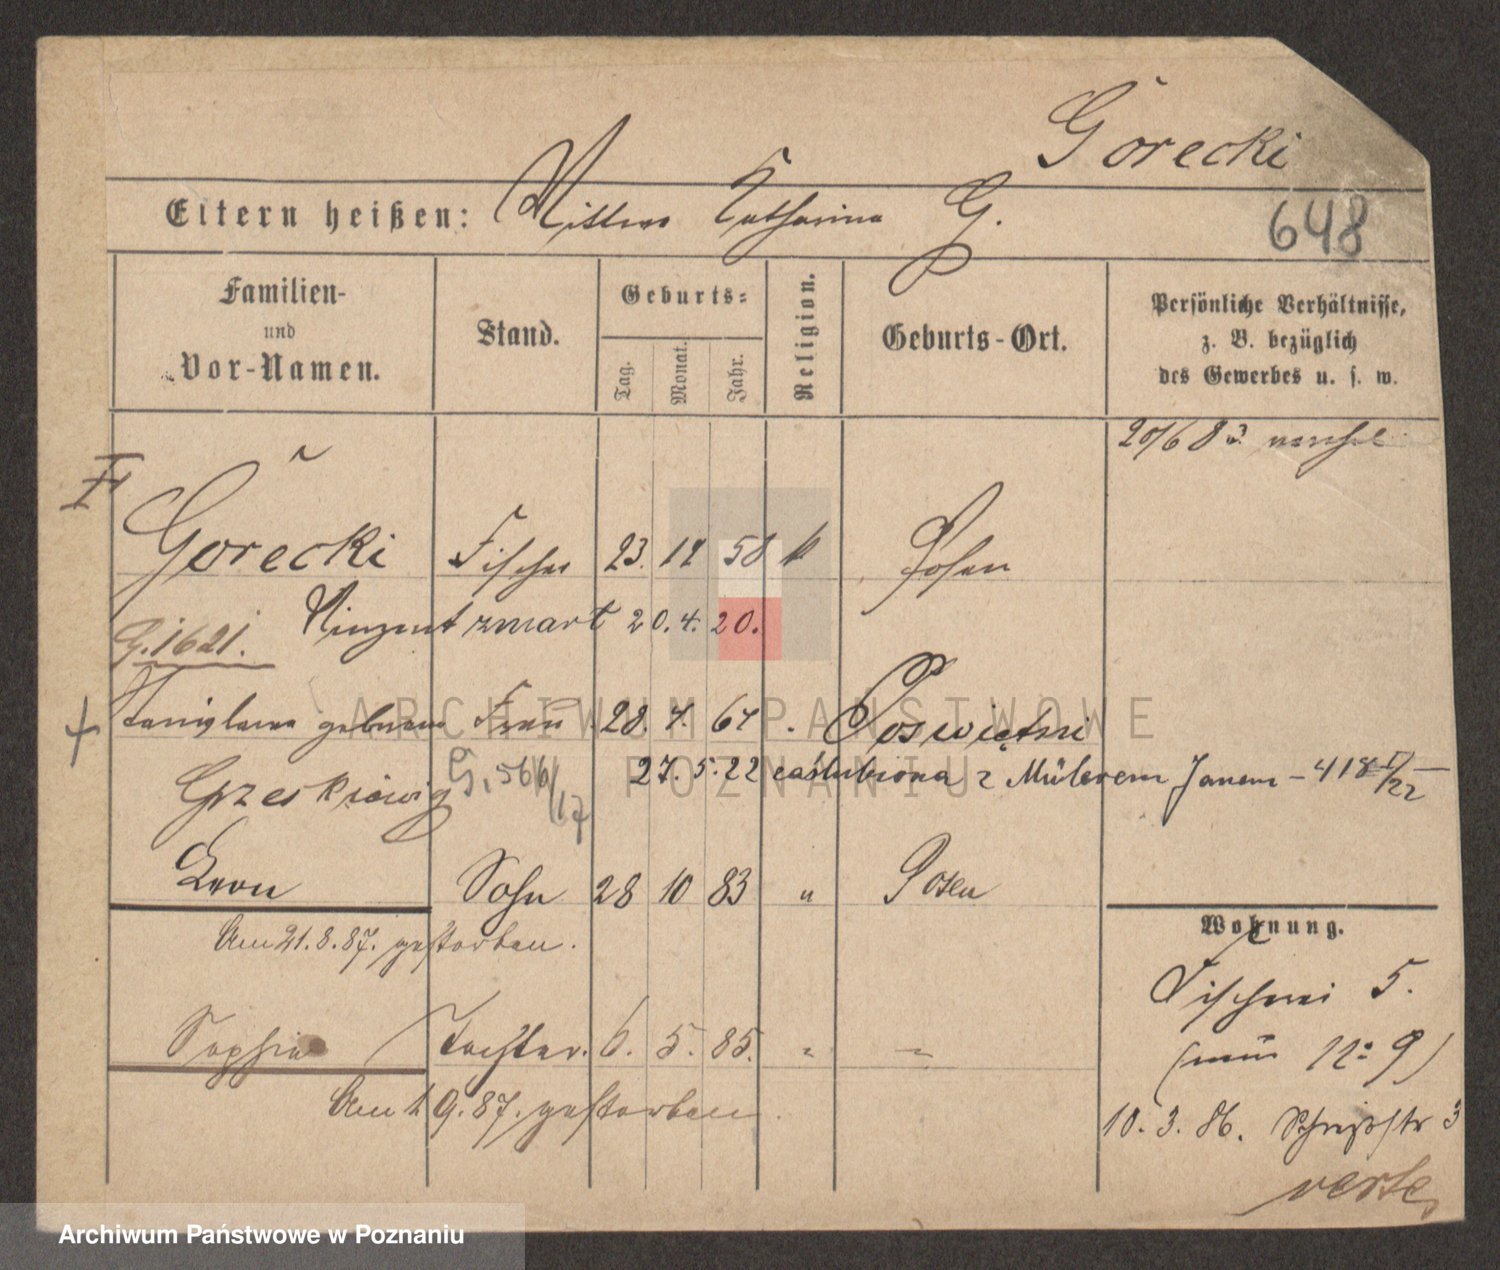 Górecki
Eltern heißen: Mutter Katharina G.
648
Familien-
und
Vor-Namen.
Stand.
Geburts-
Tag.
Monat.
Jahr.
Religion.
Geburts-Ort.
Persönliche Verhältnisse,
z. B. bezüglich
des Gewerbes u. s. w.
20/6 83
Górecki Fischer 23. 12 58 k Posen
Vinzent zmart 20. 4. 20.
G. 1621.
Stanislawa geborene Frau 28. 4. 64 Poswiętni
Grzeskiewig G. 566/17 27. 5. 22 zaślubiona z Mülerem Janem - 418 5/22
Leon Sohn 28 10 83 " Posen
Am 21. 8. 87. gestorben.
Sophia Tochter. 6. 5. 85. " "
Am 1. 9. 87. gestorben.
Wohnung.
Fischerei 5.
(nun No 9)
10. 3. 86. 3
verte
ARCHIWUM PAŃSTWOWE
POZNANIU
Archiwum Państwowe w Poznaniu